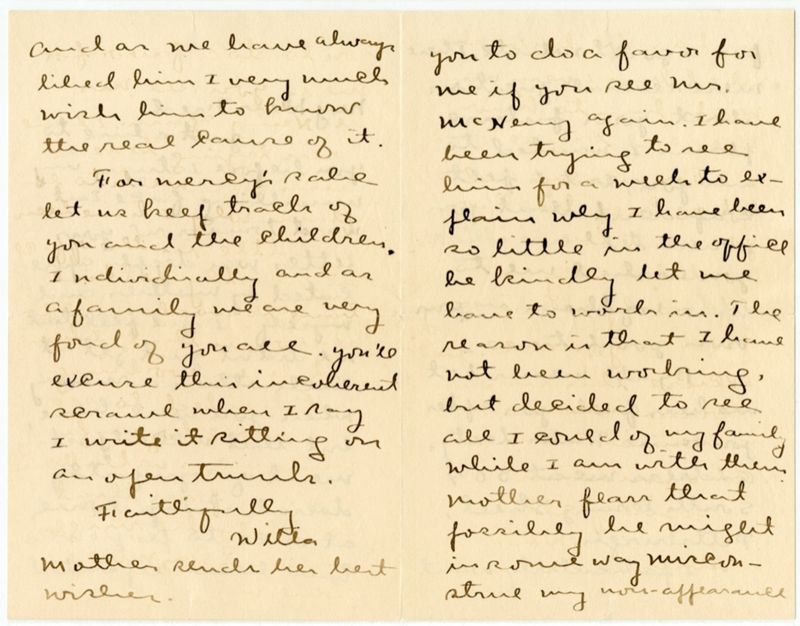 and as we have always
liked him I very much
wish him to know
the real cause of it.
For mercy's sake
let us keep track of
you and the children.
Individually and as
a family we are very
fond of you all. You'll
excuse this incoherent
scrawl when I say
I write it sitting on
an open trunk.
Faithfully
Willa
Mother sends her best
wishes.
you to do a favor for
me if you see Mr.
McNeny again. I have
been trying to see
him for a week to ex-
plain why I have been
so little in the office
he kindly let me
have to work in. The
reason is that I have
not been working,
but decided to see
all I could of my family
while I am with them.
Mother fears that
possibly he might
in some way miscon-
strue my non-appearance